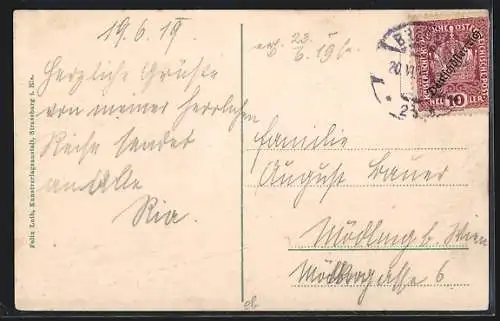 19.6.19.
Herzliche Grüße
von meiner herrlichen
Reise sendet
an Alle
Ria.
Felix Luib, Kunstverlagsanstalt, Strassburg i. Els.
23.
6. 19
20.VI
Deutschösterreich
10
Familie
August Bauer
Mödling b. Wien
6